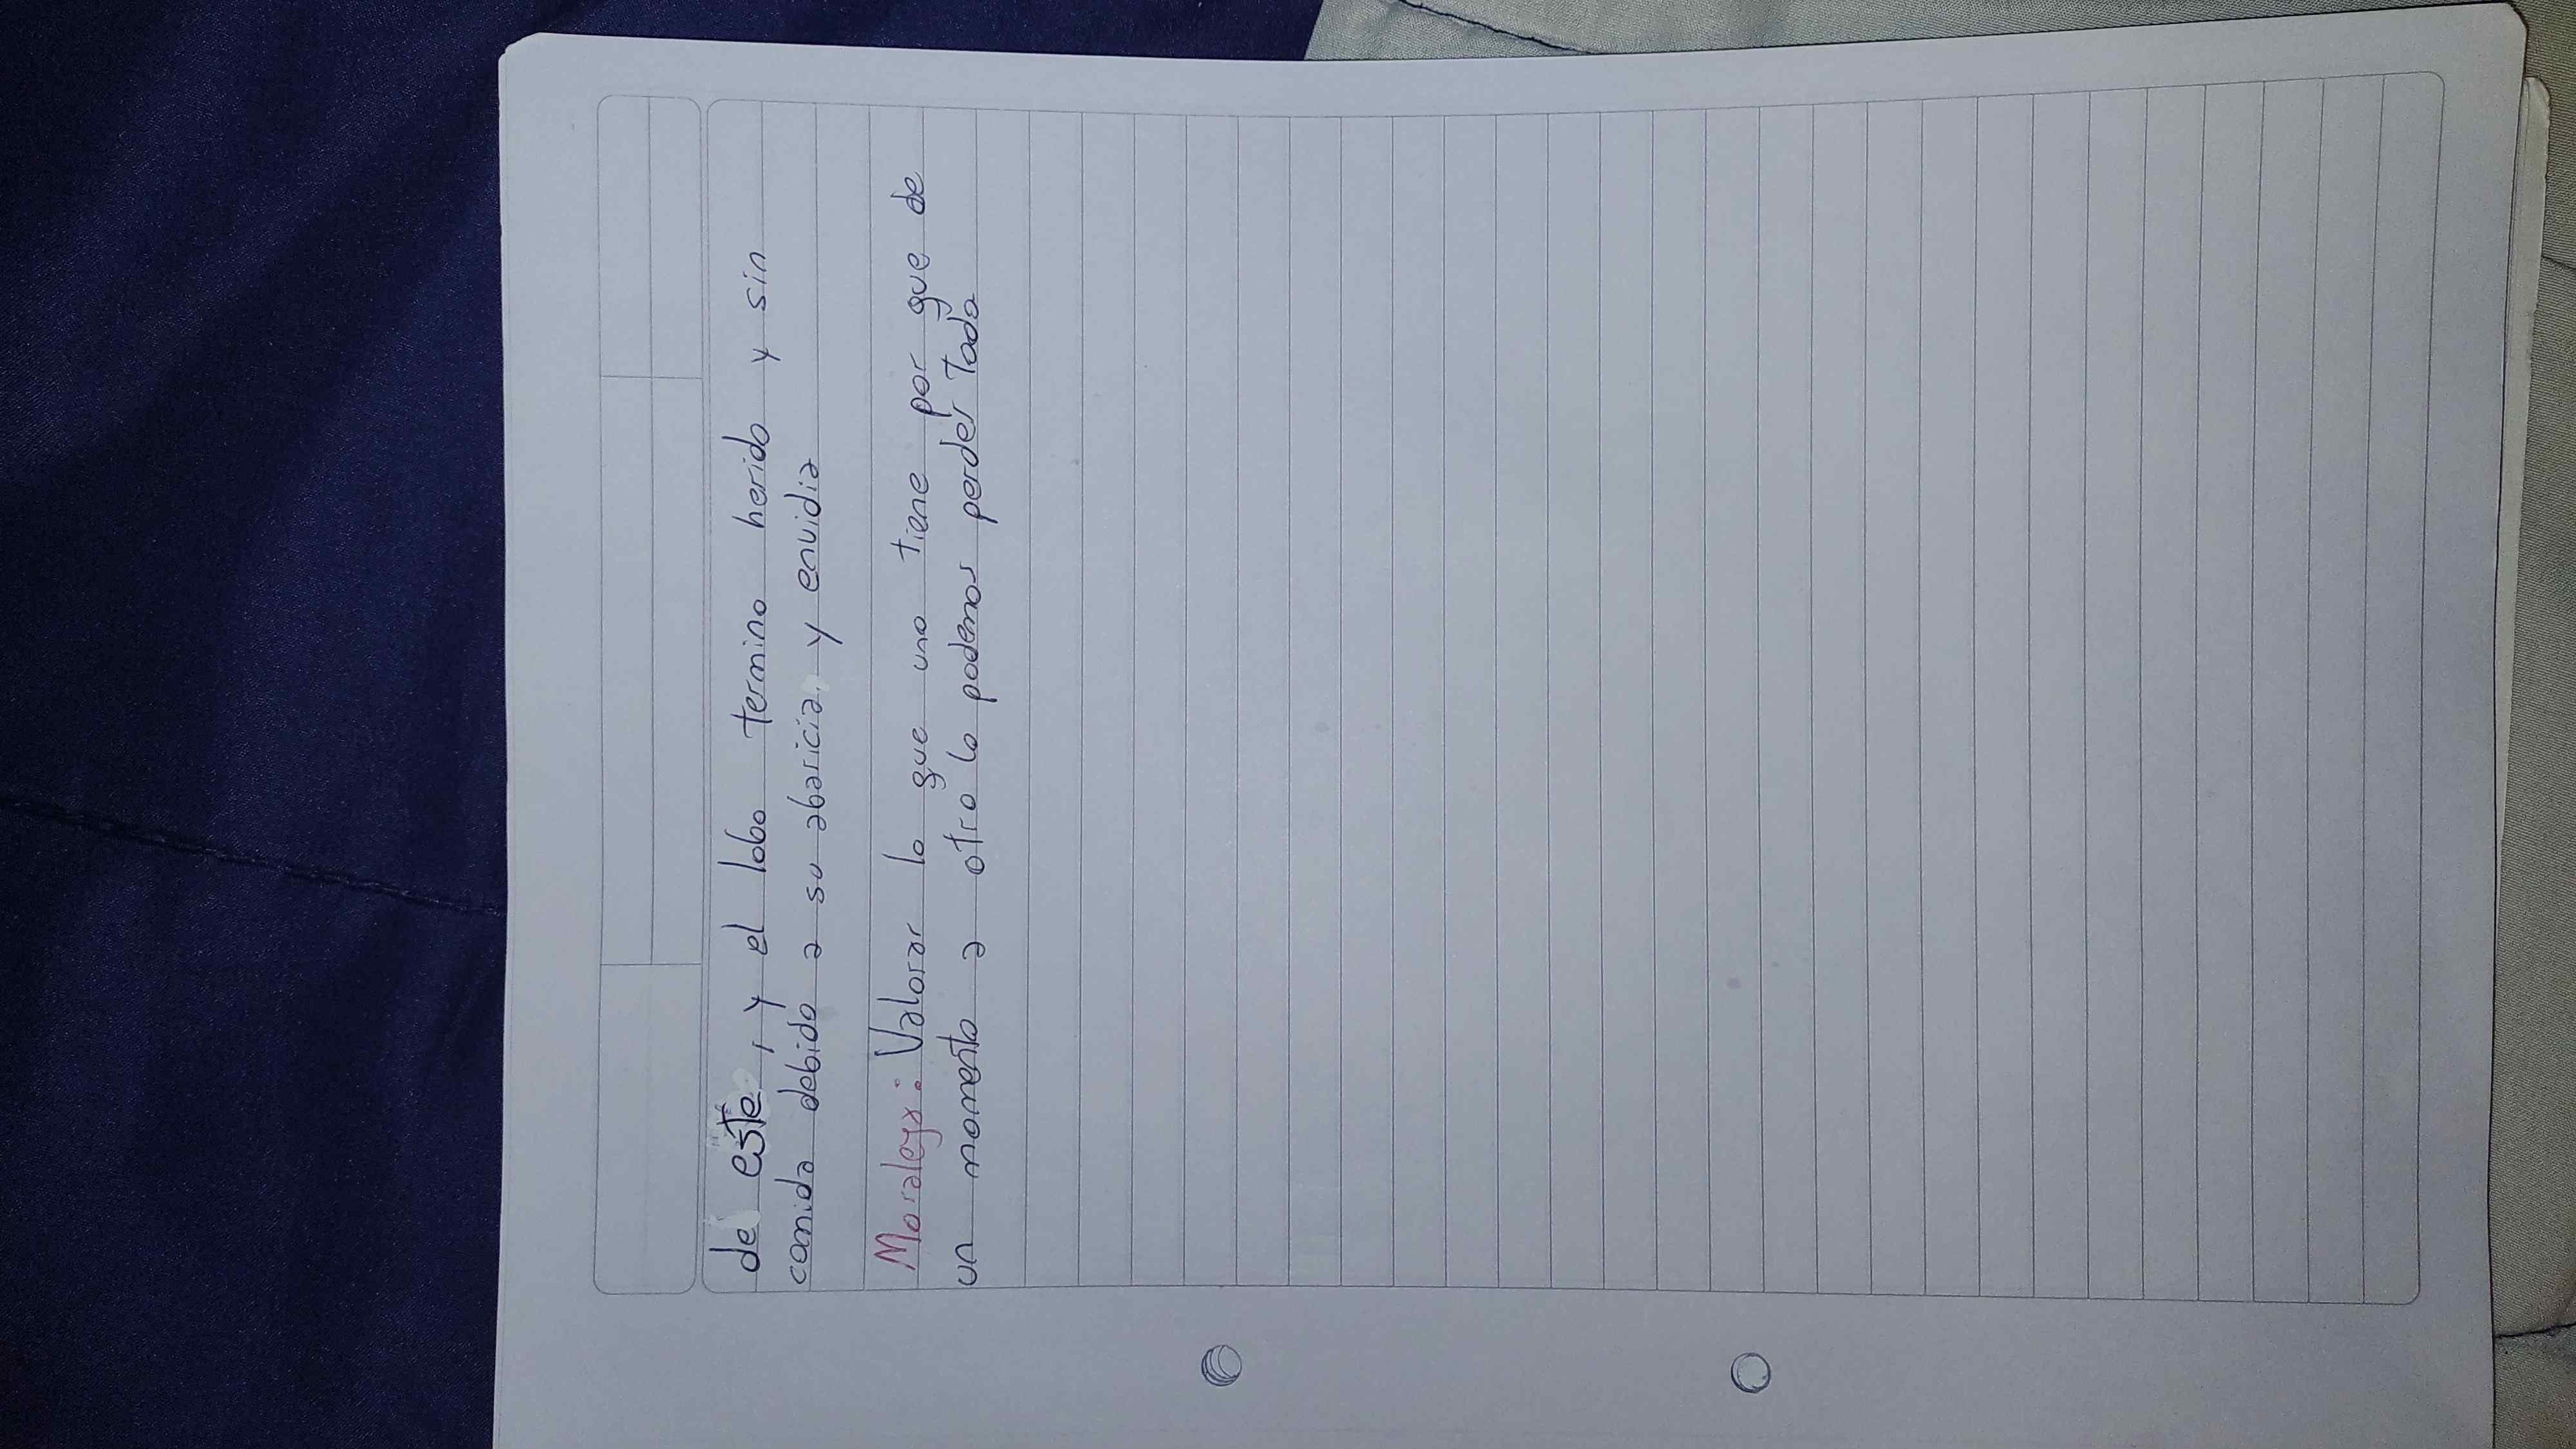 de este, y el lobo termino herido y sin
comida debido a su abaricia, y envidia
Moralejs: Valorar lo que uno tiene por que de
un momento a otro lo podemos perder Todo